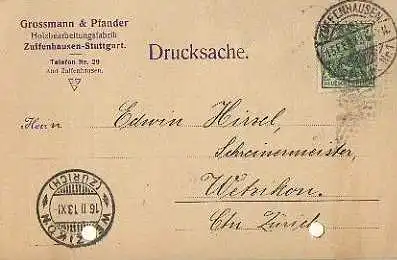 Grossmann & Pfander
Holzbearbeitungsfabrik
Zuffenhausen-Stuttgart.
Telefon Nr. 29
Amt Zuffenhausen.
Drucksache.
ZUFFENHAUSEN
Herrn
Edwin Hirzel,
Schreinermeister,
Wetzikon.
Ctn Zürich
WETZIKON
(ZÜRICH)
16 II 13 XI